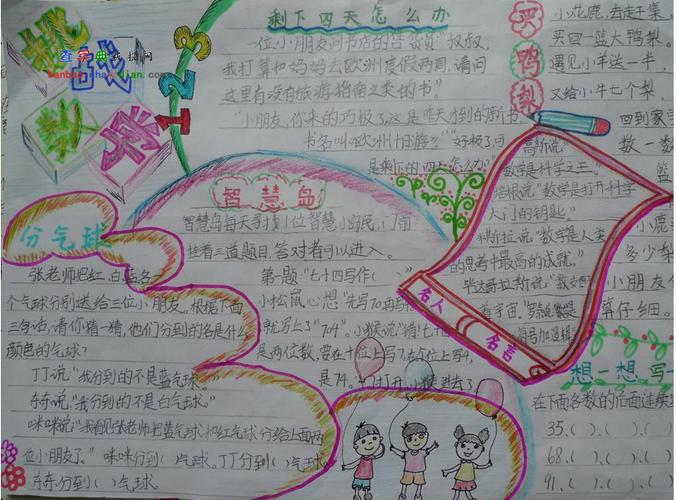 挑战
数学
123
查字典
chazidian.com
剩下四天怎么办
一位小朋友问书店的售货员"叔叔，
我打算和妈妈去欧洲度假两周，请问
这里有没有旅游指南之类的书"
"小朋友，你来的巧极了，这是昨天才到的新书，
书名叫《欧洲十日游》"好极了，可
是剩下的四天怎么办？"
买鸭梨
小花鹿，去赶集，
买回一篮大鸭梨。
遇见小羊送一半，
又给小牛七个梨
回到家
数一数
篮
小鹿
多少梨
小朋友
算仔细。
高斯说"
数学是科学之王。"
培根说"数学是打开科学
大门的钥匙。"
斯拉说"数学是人类
的思考中最高的成就。"
名人
名言
智慧岛
智慧岛每天寻找1位智慧小岛民，门前
挂着三道题目，答对者可以进入。
第一题"七十四写作（ ）
小松鼠心想"先写70再写
就写上了"704"。小猴说"错！七十
是两位数，要在十位上写7，在个位上写4，
是74。"门打开，小猴进去了
分气球
张老师把红、白、蓝各一
个气球分别送给三位小朋友。根据下面
三句话，请你猜一猜，他们分到的各是什么
颜色的气球？
丁丁说"我分到的不是蓝气球。"
东东说"我分到的不是白气球。"
咪咪说"我看见张老师把蓝气球和红气球分给上面两
位小朋友了。"咪咪分到（ ）气球。丁丁分到（ ）气球
东东分到（ ）气球
想一想，写一
在下面各数的后面连续
35.( ).( ).(
68.( ).( ).(
91.( ).( ).(